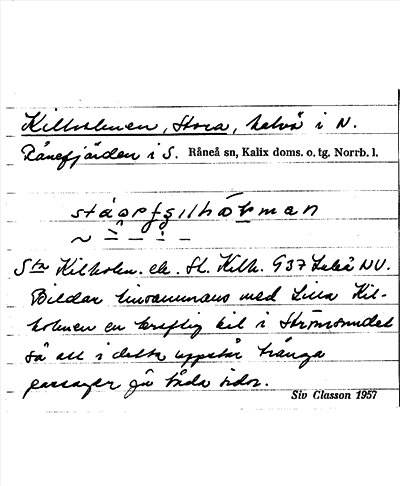 Kilholmen, Stora, halvö i N.
Rånefjärden i S. Råneå sn, Kalix doms. o. tg. Norrb. l.
Sta Kilholm. ek. St. Kilh. G37 Luleå NV.
Bildar tillsammans med Lilla Kil-
holmen en kraftig kil i Strömsundet
så att i detta uppstår trånga
passager på båda sidor.
Siv Classon 1957